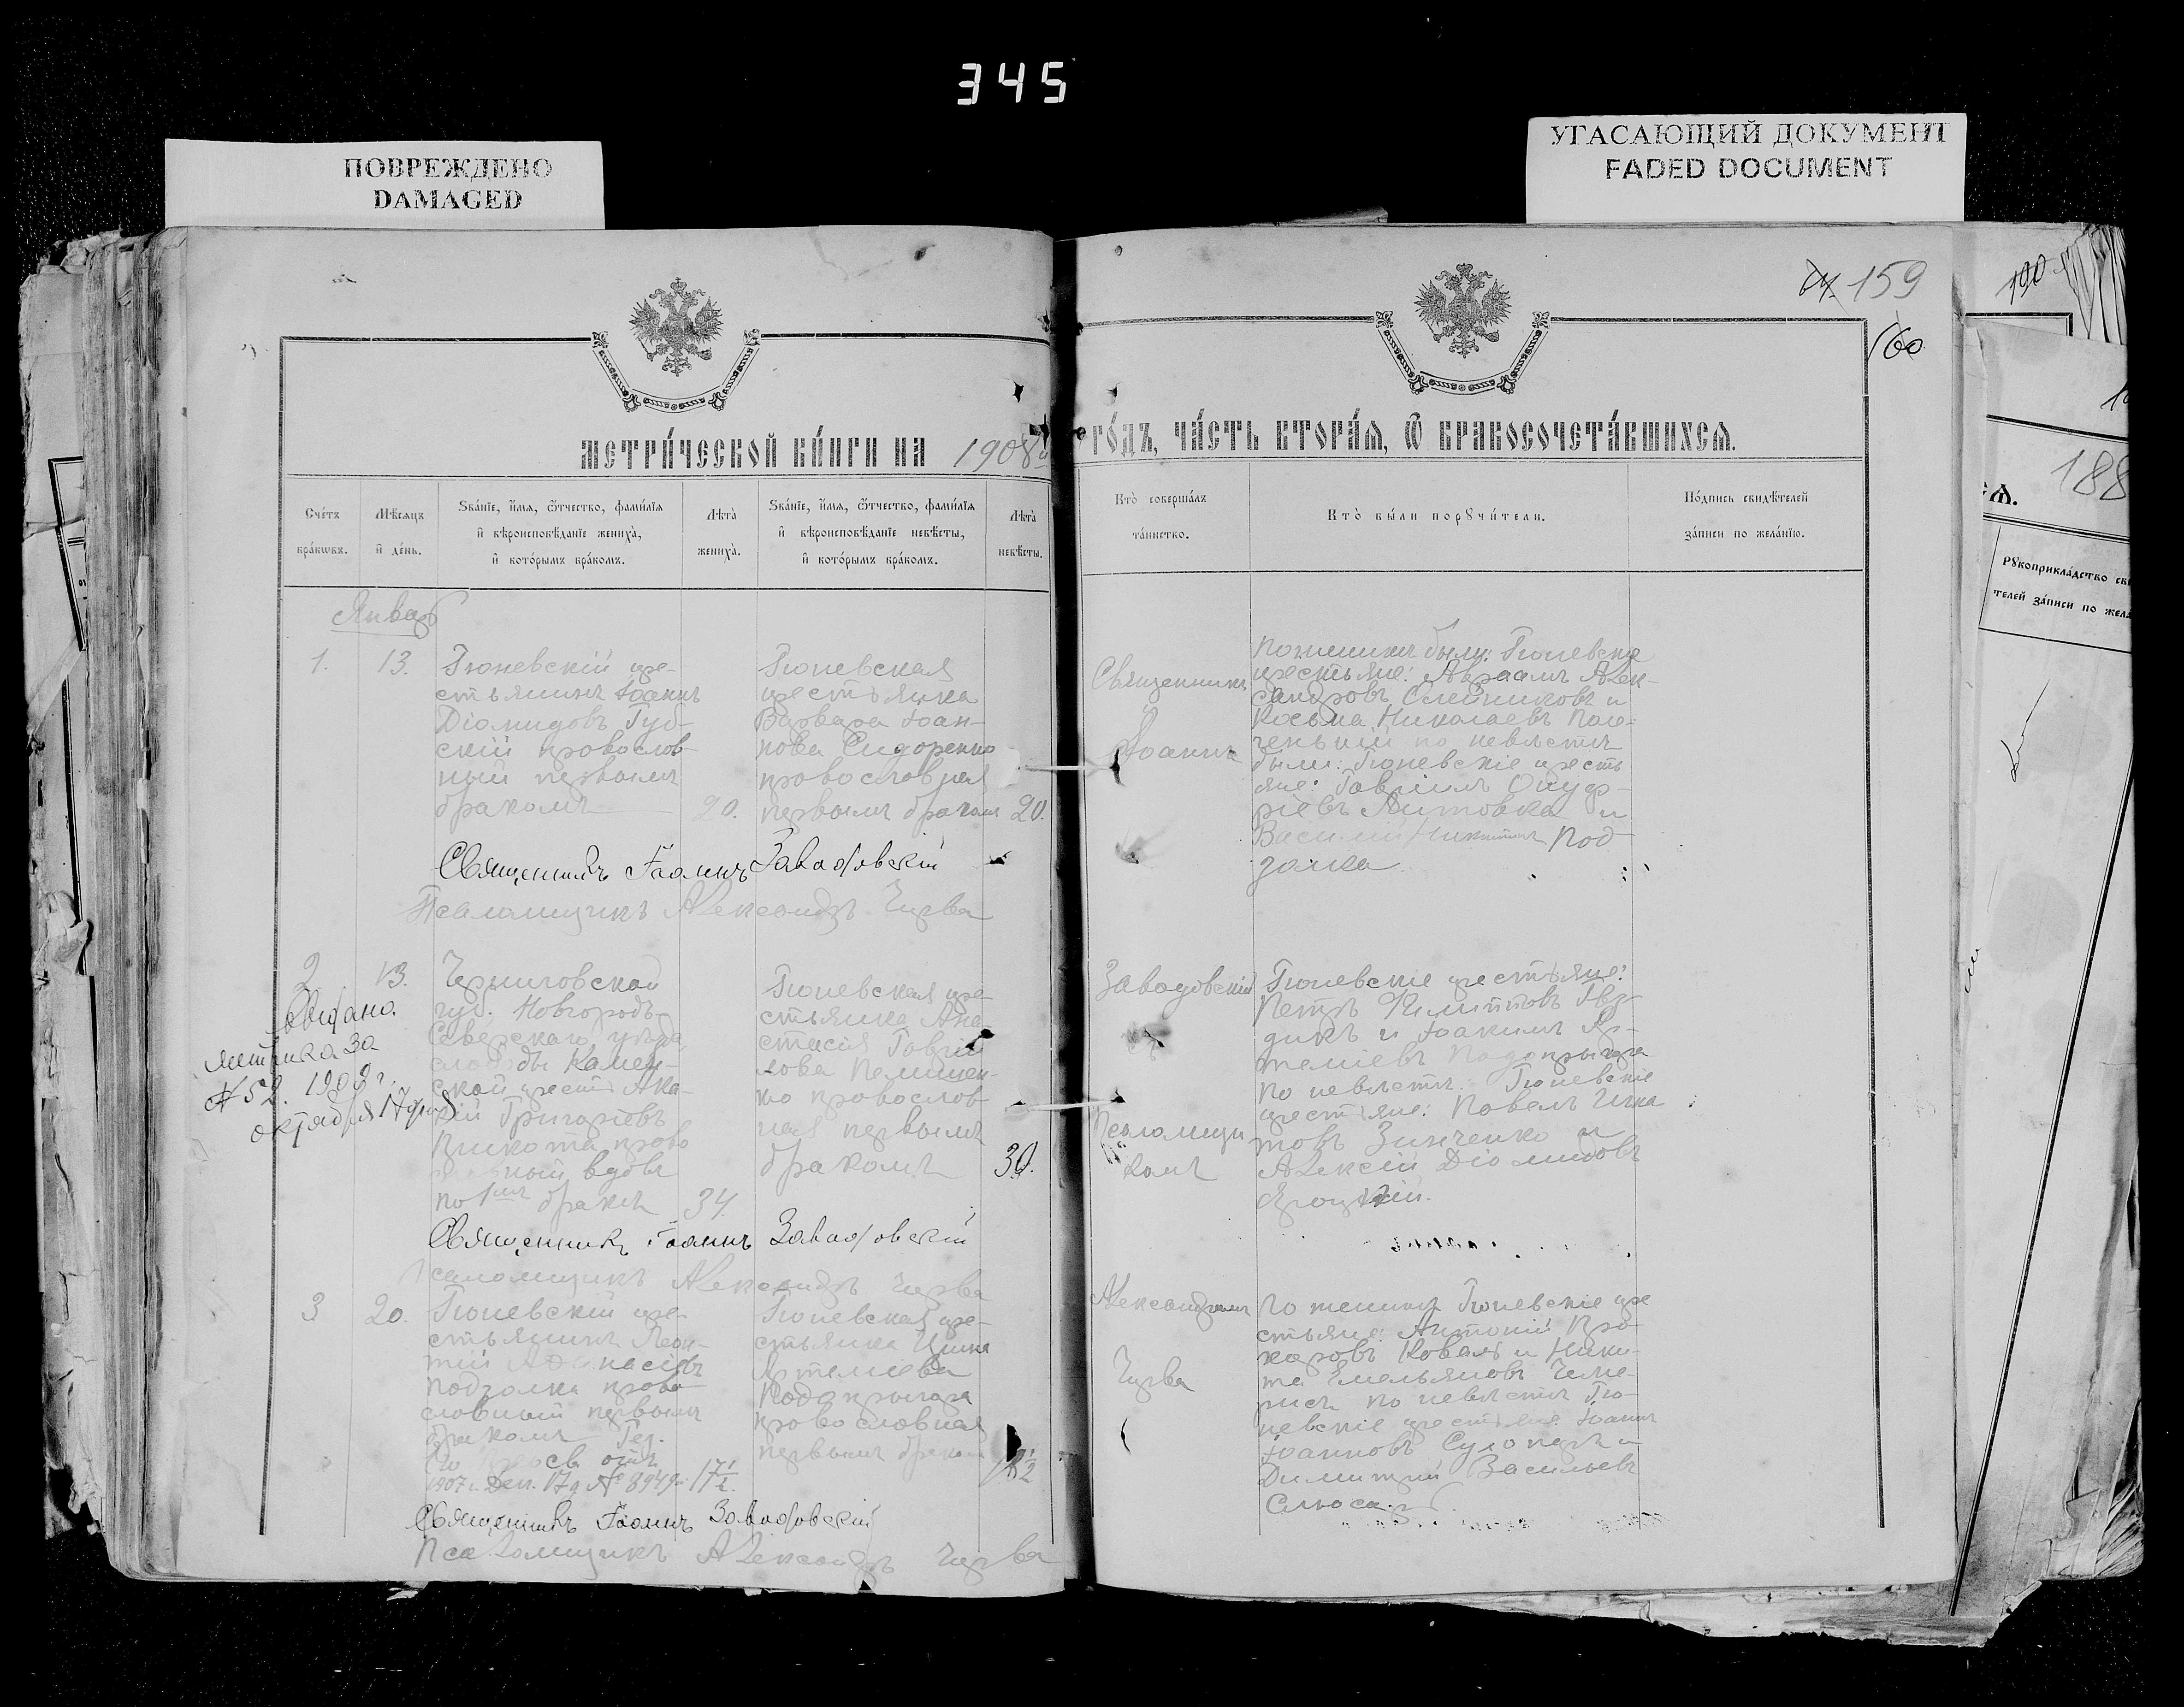 345
ПОВРЕЖДЕНО
DAMAGED
УГАСАЮЩИЙ ДОКУМЕНТ
FADED DOCUMENT
159
160
190
188
МЕТРИ́ЧЕСКОЙ КНИ́ГИ НА 1908й
ГО́ДЪ, ЧА́СТЬ ВТОРА́Я, Ѿ БРАКОСОЧЕТА́ВШИХСЯ.
Сче́тъ
бра́кѡвъ.
Мѣ́сяцъ
и҆ де́нь.
Ѕва́нїе, и҆́мя, ѻ҆́тчество, фами́лїя
и҆ вѣроисповѣ́данїе жениха̀,
и҆ кото́рымъ бра́комъ.
Лѣ́та
жениха̀.
Ѕва́нїе, и҆́мя, ѻ҆́тчество, фами́лїя
и҆ вѣроисповѣ́данїе невѣ́сты,
и҆ кото́рымъ бра́комъ.
Лѣ́та
невѣ́сты.
Кто̀ соверша́лъ
та́инство.
Кто̀ бы́ли порꙋчи́тели.
По́дпись свидѣ́телей
за́писи по жела́нїю.
Рꙋкоприкла́дство
телей за́писи по
Январь
1.
13.
Гюневскій кре-
стьянинъ Іоаннъ
Діомидовъ Губ-
скій провослов-
ный первымъ
бракомъ
20.
Гюневская
крестьянка
Варвара Іоан-
нова Сидоренко
провословная
первымъ бракомъ
20.
Священникъ
Іоаннъ
По женихѣ были: Гюневскіе
крестьяне: Авраамъ Алек-
сандровъ Олейниковъ и
Косьма Николаевъ
по невѣстѣ
были: Гюневскіе кресть
яне: Гавріилъ Онуф-
ріевъ Литовка и
Василій Никитинъ Под
золка
Священникъ Іоаннъ Заводовскій
Псаломщикъ Александръ Чирва
2
13.
Выдана
метрика за
№ 52. 1909 г.
октября 17 дня
Черниговской
губ. Новгородъ-
Северскаго уѣзда
слободы Камен-
ской крест. Ака-
кій Григоріевъ
Пикота право
вный вдовъ
по 1мъ бракѣ
34.
Гюневская кре-
стьянка Ана-
стасія Гавріи
лова
ко провослов
ная первымъ
бракомъ
30.
Заводовскій
Псаломщи
комъ
Гюневскіе крестьяне:
Петръ
дикъ и Іоакимъ Ар-
теміевъ Подопрыгора
по невѣстѣ: Гюневскіе
крестьяне: Павелъ Игна
товъ Зинченко и
Алексій Діомидовъ
Яроцкій.
Священникъ Іоаннъ Заводовскій
Псаломщикъ Александръ Чирва
3
20.
Гюневскій кре-
стьянинъ Леон-
тій Афанасіевъ
Подзолка право
славный первымъ
бракомъ
св. отъ
1907 г. Дек. 17 д. № 8949
17½.
Гюневская кре-
стьянка
Артемиева
Подопрыгора
провословная
первымъ бракомъ
Александромъ
Чирва
По женихѣ Гюневскіе кре
стьяне: Антоній Про-
хоровъ Коваль и Ники-
та Емельяновъ Чеме-
рисъ по невѣстѣ Гю-
невскіе крестьяне Іоаннъ
Іоанновъ и
Димитрій Васильевъ
Слюсарь.
Священникъ Іоаннъ Заводовскій
Псаломщикъ Александръ Чирва